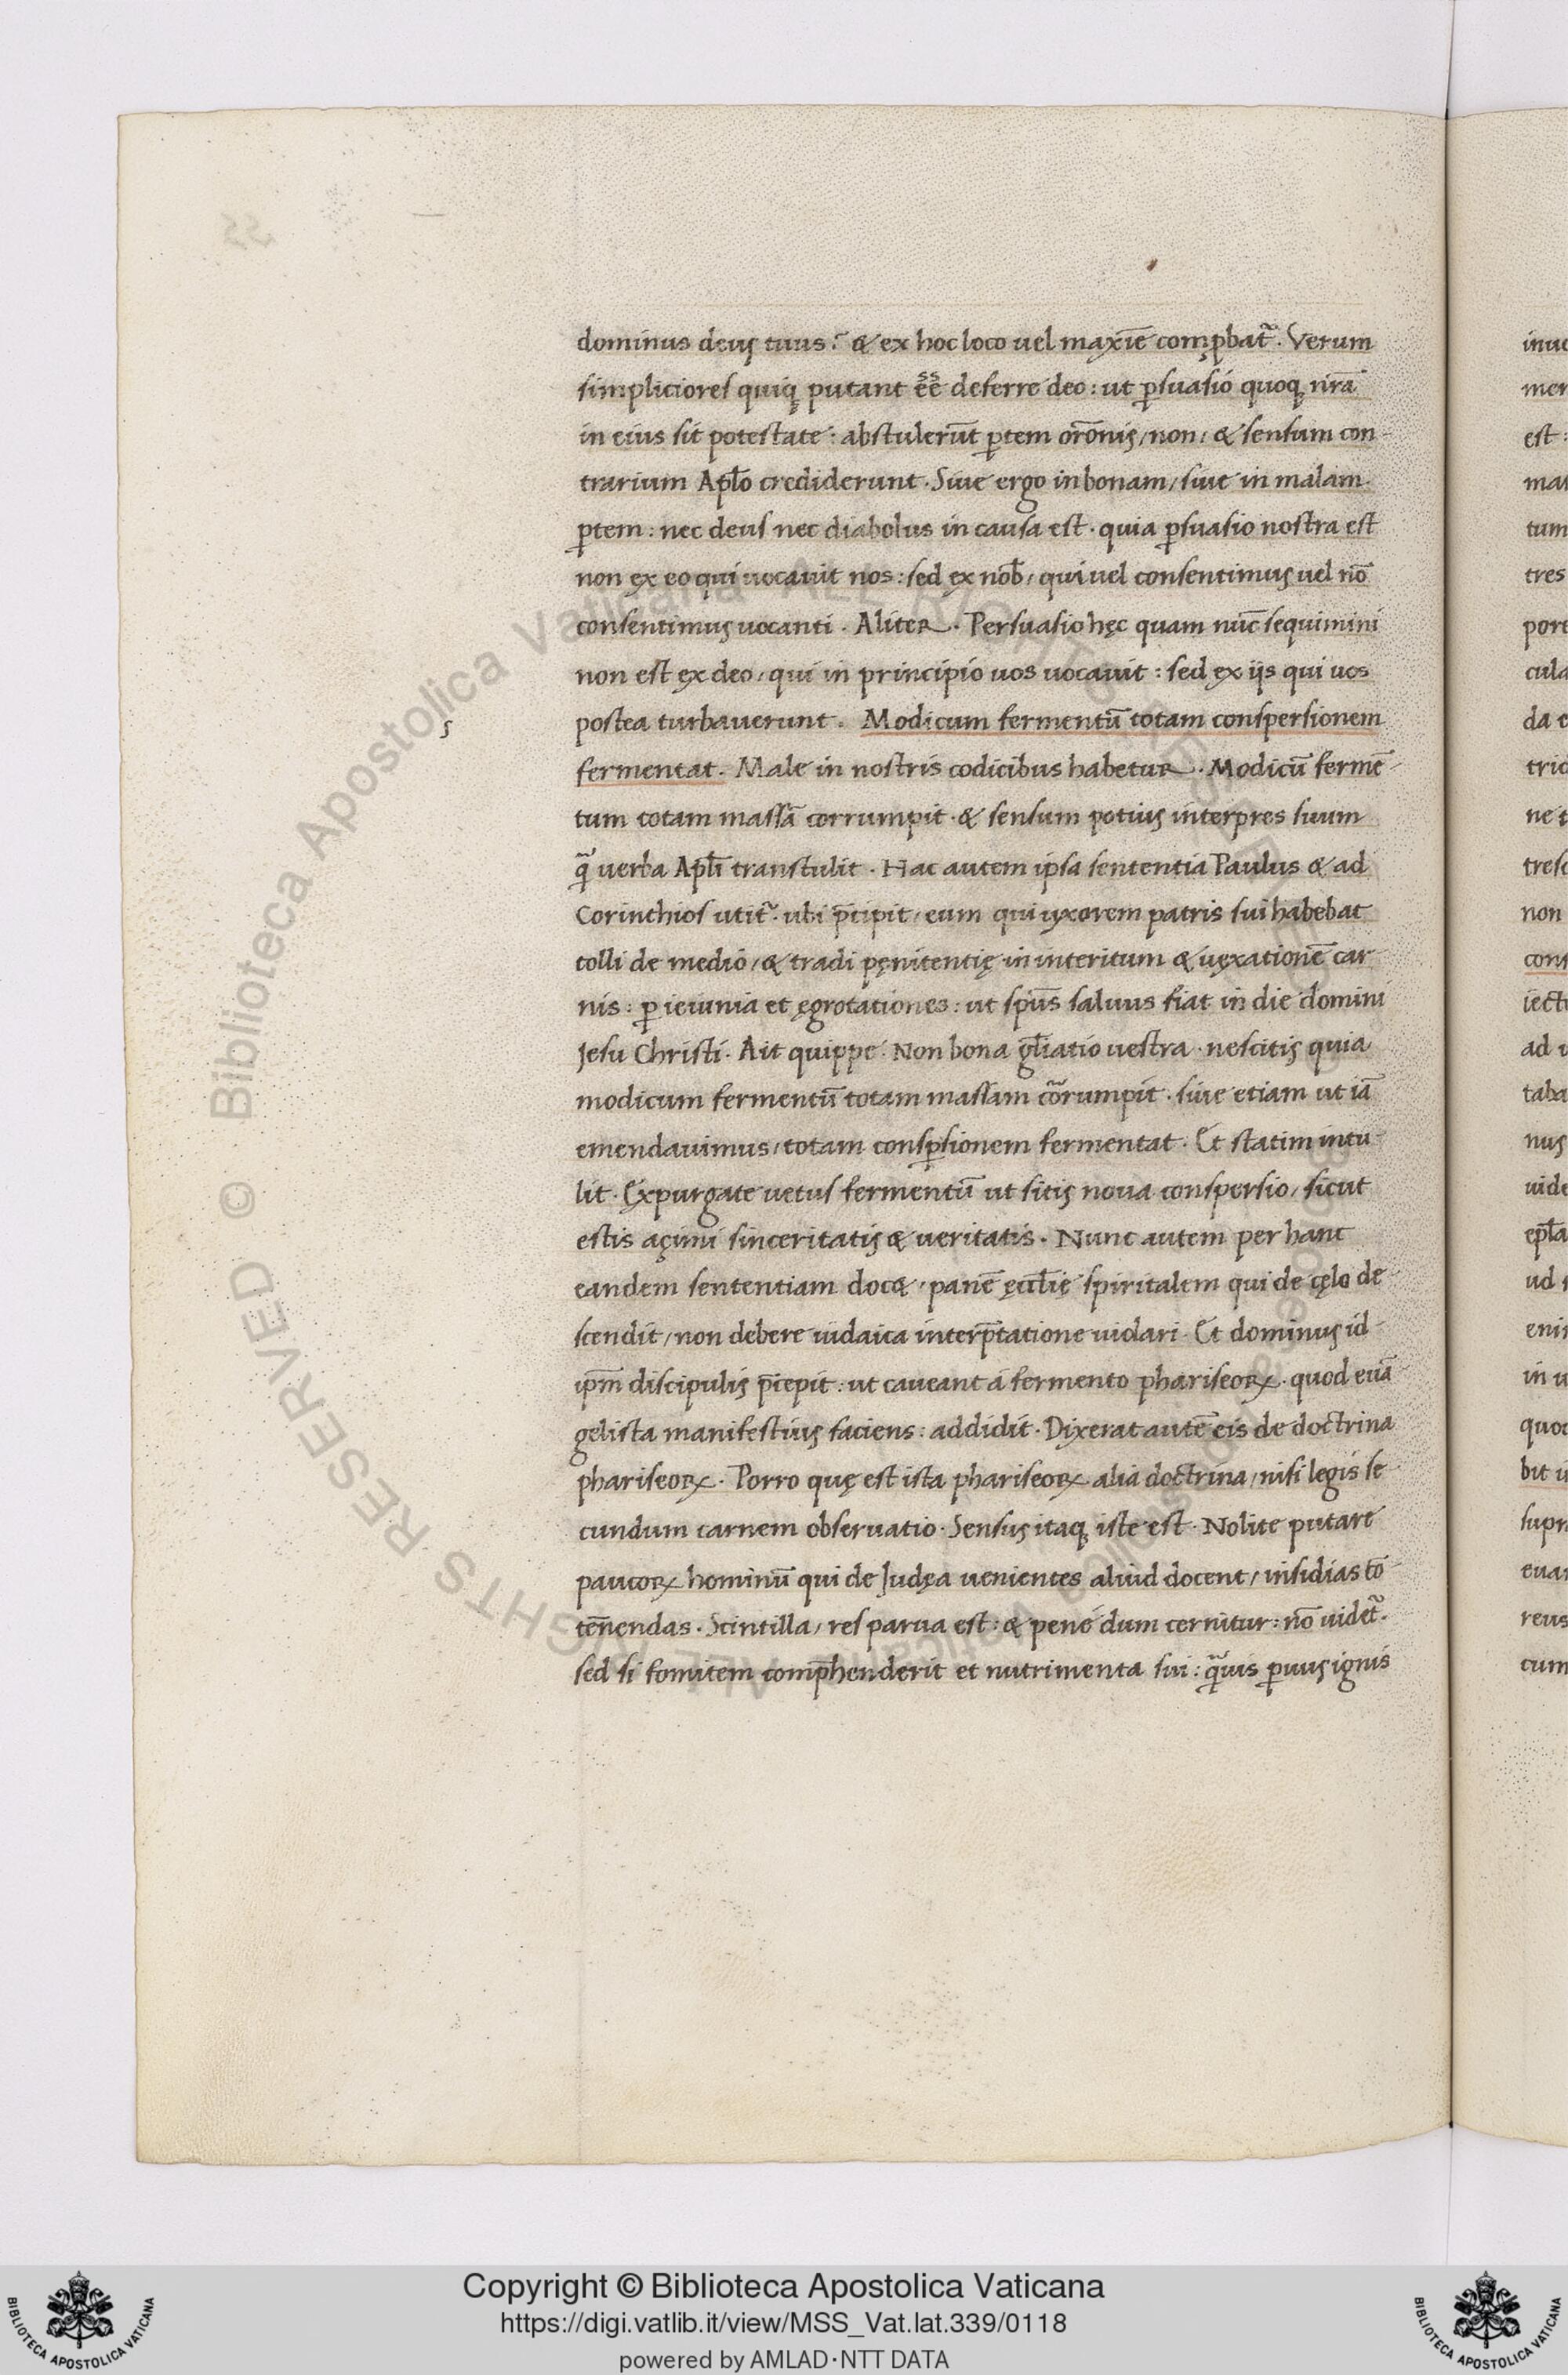 dominus deus tuus? & ex hoc loco uel maxīe comꝓbat᷑. Verum
simpliciores quiqꝫ putant ēē deferre deo: ut ꝑsuasio quoqꝫ nr̄a
in eius sit potestate: abstulerūt ꝑtem orōnis, non, & sensum con-
trarium Apl̄o crediderunt. Siue ergo in bonam, siue in malam
ꝑtem: nec deus nec diabolus in causa est. quia ꝑsuasio nostra est
non ex eo qui uocauit nos: sed ex nob̄, qui uel consentimus uel nō
consentimus uocanti. Aliter. Persuasio hęc quam nūc sequimini
non est ex deo, qui in principio uos uocauit: sed ex iis qui uos
postea turbauerunt. Modicum fermentū totam conspersionem
fermentat. Male in nostris codicibus habetur. Modicū fermē-
tum totam massā corrumpit. & sensum potius interpres suum
q̄ uerba Apl̄i transtulit. Hac autem ipsa sententia Paulus & ad
Corinthios utit᷑. ubi p̄cipit, eum qui uxorem patris sui habebat
tolli de medio, & tradi pęnitentię in interitum & uęxationē car-
nis: ꝑ ieiunia et ęgrotationes: ut sp̄us saluus fiat in die domini
Jesu Christi. Ait quippe. Non bona gl̄iatio uestra. nescitis quia
modicum fermentū totam massam cōrumpit. siue etiam ut iā
emendauimus, totam consꝑsionem fermentat. Et statim intu-
lit. Expurgate uetus fermentū ut sitis noua conspersio, sicut
estis açimi sinceritatis & ueritatis. Nunc autem per hanc
eandem sententiam doc&, panē ęccl̄ię spiritalem qui de cęlo de-
scendit, non debere iudaica interp̄tatione uiolari. Et dominus id-
ip̄m discipulis p̄cepit: ut caueant á fermento phariseoꝝ. quod euā-
gelista manifestius faciens: addidit. Dixerat autē eis de doctrina
phariseoꝝ. Porro quę est ista phariseoꝝ alia doctrina, nisi legis se-
cundum carnem obseruatio. Sensus itaqꝫ iste est. Nolite putare
paucoꝝ hominū qui de Judęa uenientes aliud docent, insidias cō-
tēnendas. Scintilla, res parua est: & pené dum cernitur: nō uidet᷑.
sed si fomitem comp̄henderit et nutrimenta sui: q̄uis ꝑuus ignis
s
inuc
men
est:
mat
tum
tres
pore
cula
da e
tric
ne t
tresc
non
cons
iectu
ad u
taba
nus
uide
epl̄a
ud s
enim
in u
quoc
bit iu
supr
euan
reus
cum
© Biblioteca Apostolica Vaticana ALL RIGHTS RESERVED
Copyright © Biblioteca Apostolica Vaticana
https://digi.vatlib.it/view/MSS_Vat.lat.339/0118
powered by AMLAD·NTT DATA
BIBLIOTECA APOSTOLICA VATICANA
BIBLIOTECA APOSTOLICA VATICANA